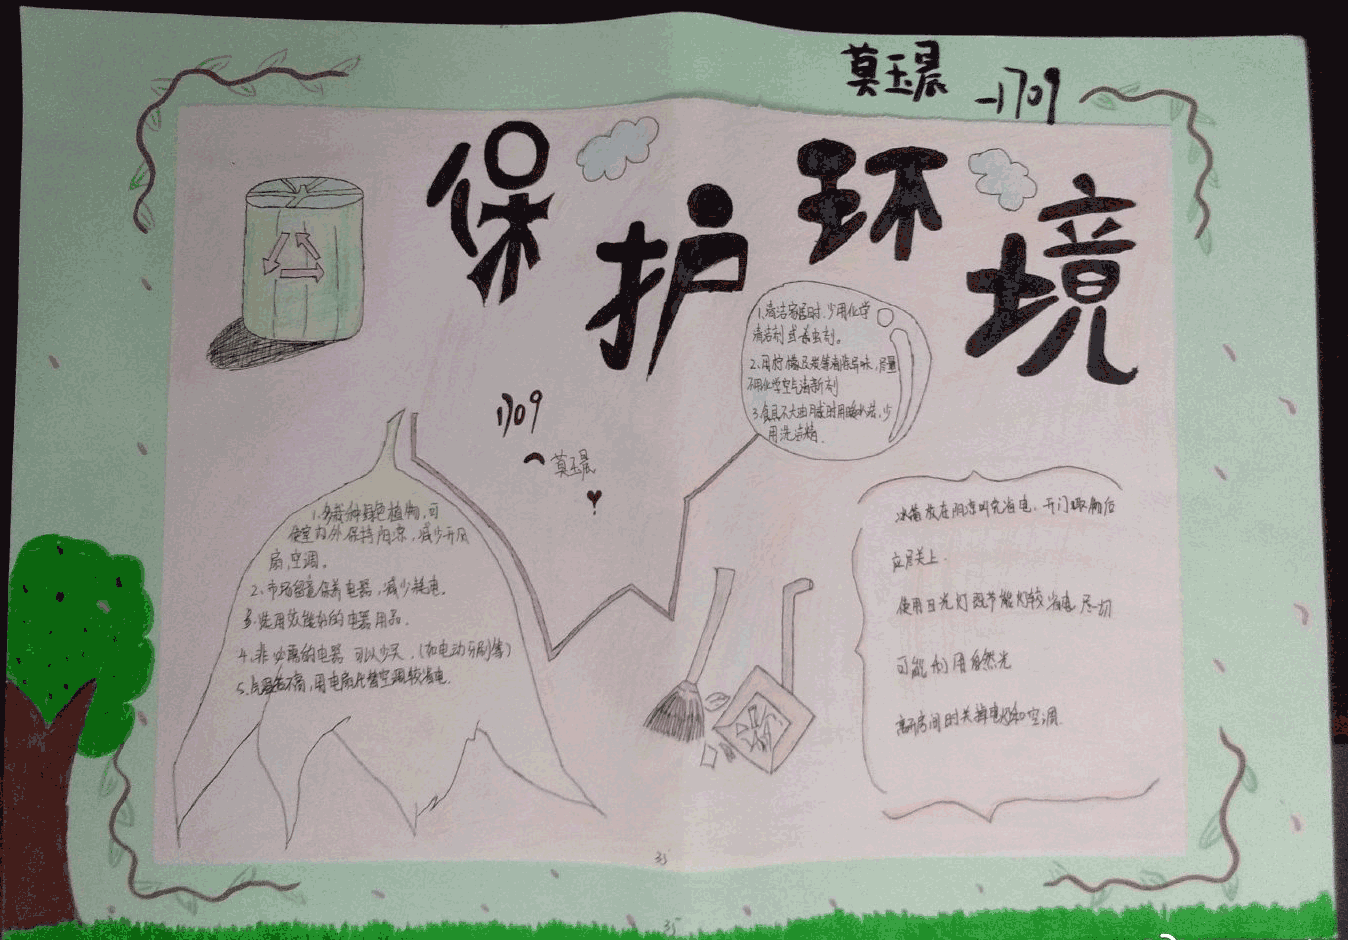 莫玉晨
1709
保护环境
1709
莫玉晨
1.清洁家居时,少用化学
清洁剂或杀虫剂。
2.用柠檬及炭等消除异味,尽量
不用化学空气清新剂
3.食具不大油腻时用暖水洗,少
用洗洁精.
1.多栽种绿色植物,可
使室内外保持阴凉,减少开风
扇,空调。
2.市场留意保养电器,减少耗电.
3.选用效能好的电器用品.
4.非必需的电器可以少买.(如电动牙刷等)
5.气温若不高,用电扇代替空调较省电.
冰箱放在阴凉处省电,开门取物后
应尽关上.
使用日光灯既节能灯较省电 尽一切
可能利用自然光
离开房间时关掉电灯和空调.
35
35